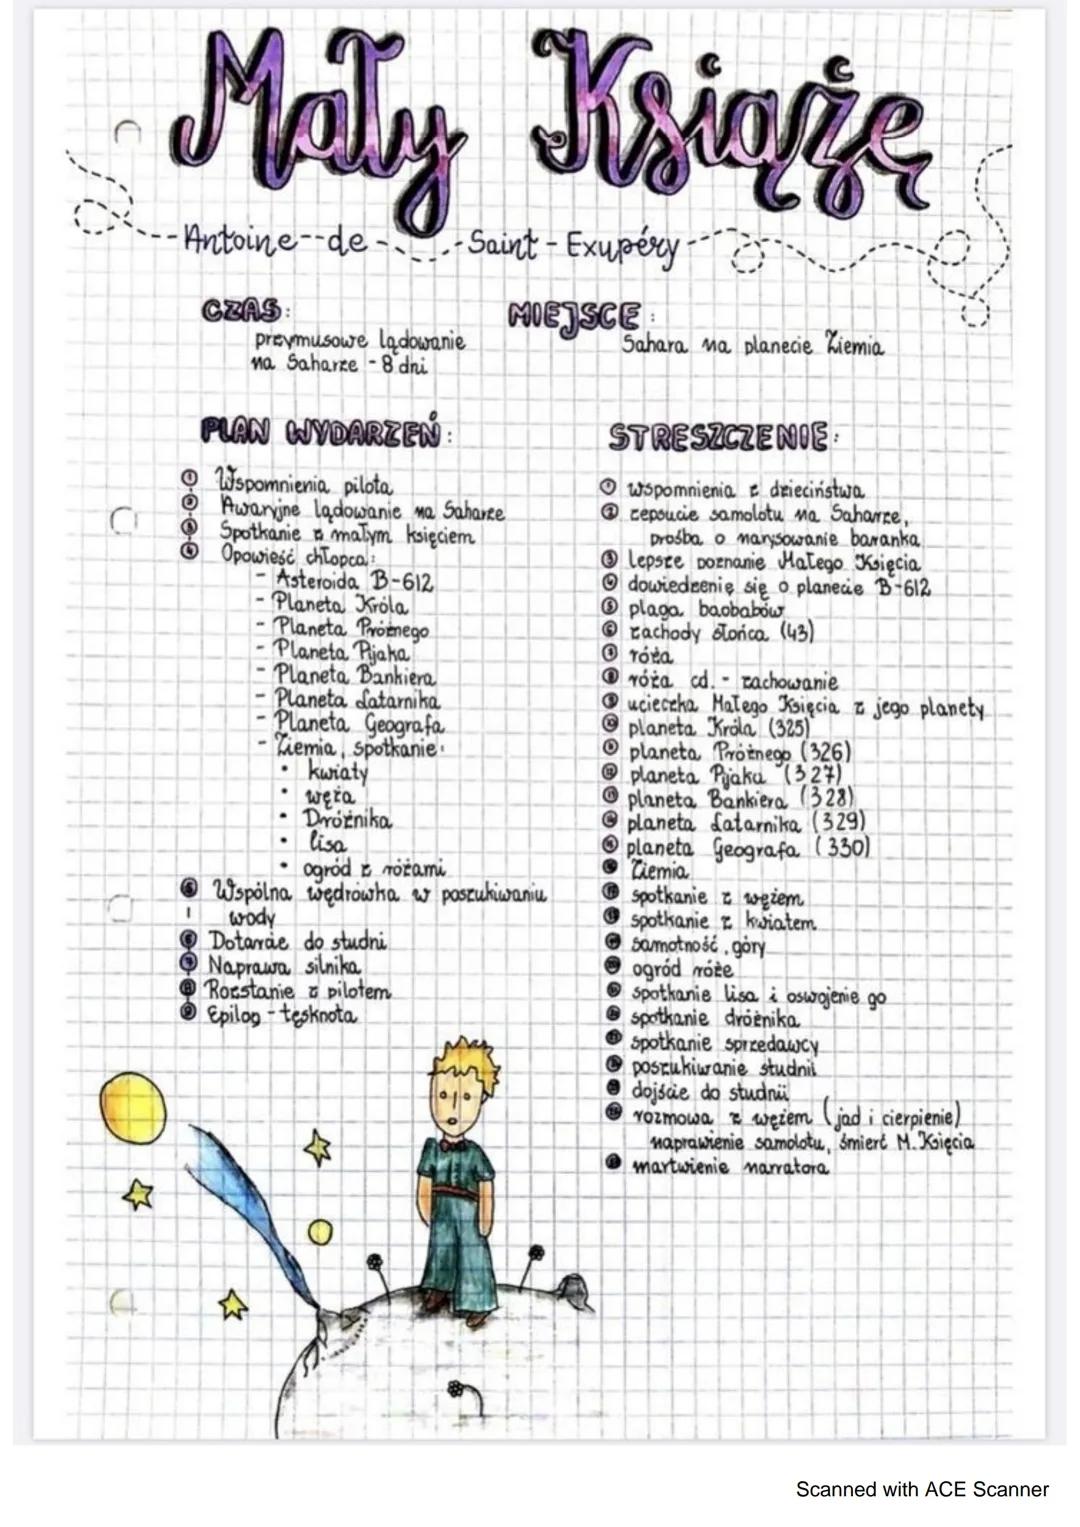 Mały Książę
Antoine de Saint-Exupéry
CZAS:
przymusowe lądowanie
na Saharze - 8 dni
MIEJSCE:
Sahara na planecie Ziemia
PLAN WYDARZEŃ:
① Wspomnienia pilota
② Awaryjne lądowanie na Saharze
③ Spotkanie z małym księciem
④ Opowieść chłopca:
- Asteroida B-612
- Planeta Króla
- Planeta Próżnego
- Planeta Pijaka
- Planeta Bankiera
- Planeta Latarnika
- Planeta Geografa
- Ziemia, spotkanie:
• kwiaty
• węża
• Dróżnika
• lisa
• ogród z różami
⑤ Wspólna wędrówka w poszukiwaniu
wody
⑥ Dotarcie do studni
⑦ Naprawa silnika
⑧ Rozstanie z pilotem
⑨ Epilog - tęsknota
STRESZCZENIE:
① wspomnienia z dzieciństwa
② zepsucie samolotu na Saharze,
prośba o narysowanie baranka
③ lepsze poznanie Małego Księcia
④ dowiedzenie się o planecie B-612
⑤ plaga baobabów
⑥ zachody słońca (43)
⑦ róża
⑧ róża cd. - zachowanie
⑨ ucieczka Małego Księcia z jego planety
⑩ planeta Króla (325)
⑪ planeta Próżnego (326)
⑫ planeta Pijaka (327)
⑬ planeta Bankiera (328)
⑭ planeta Latarnika (329)
⑮ planeta Geografa (330)
⑯ Ziemia
⑰ spotkanie z wężem
⑱ spotkanie z kwiatem
⑲ samotność, góry
⑳ ogród róże
㉑ spotkanie lisa i oswojenie go
㉒ spotkanie dróżnika
㉓ spotkanie sprzedawcy
㉔ poszukiwanie studni
㉕ dojście do studnii
㉖ rozmowa z wężem (jad i cierpienie)
naprawienie samolotu, śmierć M. Księcia
㉗ martwienie narratora
Scanned with ACE Scanner